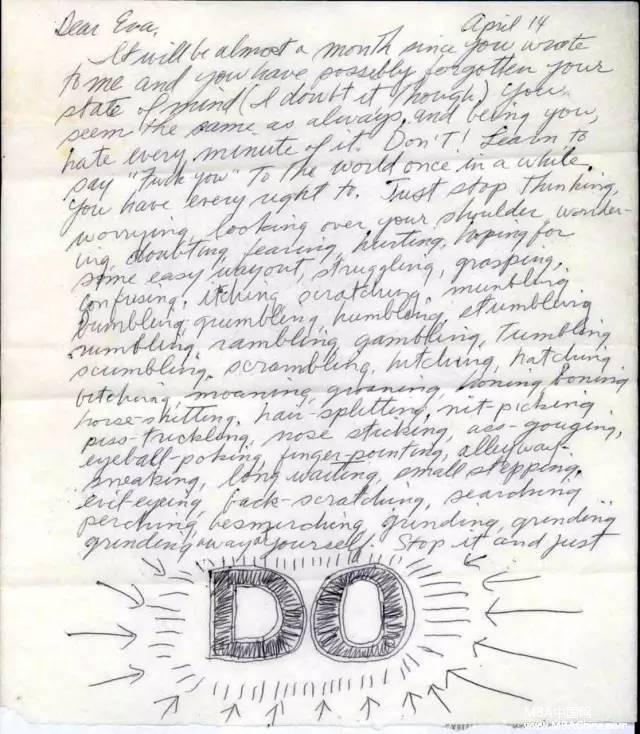 Dear Eva, April 14
It will be almost a month since you wrote
to me and you have possibly forgotten your
state of mind (I doubt it though). You
seem the same as always, and being you,
hate every minute of it. Don't! Learn to
say "Fuck You" to the world once in a while.
You have every right to. Just stop thinking,
worrying, looking over your shoulder, wonder-
ing, doubting, fearing, hurting, hoping for
some easy way out, struggling, grasping,
confusing, itching, scratching, mumbling,
bumbling, grumbling, humbling, stumbling,
rumbling, rambling, gambling, tumbling,
scumbling, scrambling, hitching, hatching,
bitching, moaning, groaning, honing, boning,
horse-shitting, hair-splitting, nit-picking,
piss-trickling, nose sticking, ass-gouging,
eyeball-poking, finger-pointing, alleyway-
sneaking, long waiting, small stepping,
evil-eyeing, back-scratching, searching,
perching, besmirching, grinding, grinding,
grinding away at yourself. Stop it and just
DO
MBA中国网
www.MBAChina.com